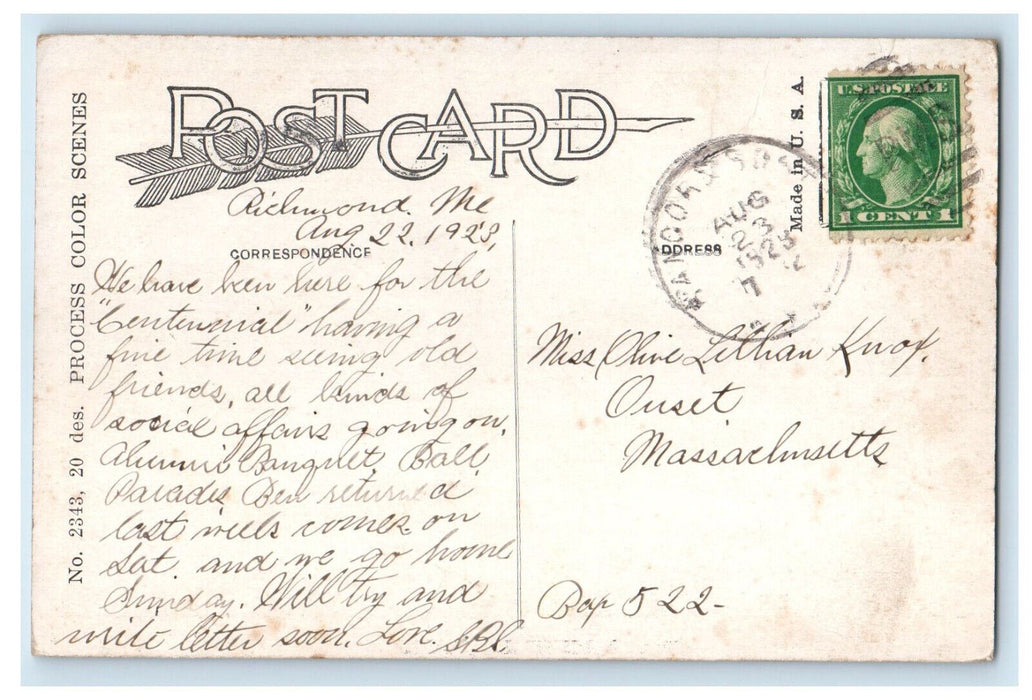 POST CARD
No. 2343, 20 des. PROCESS COLOR SCENES
Richmond. Me
Aug 22, 1923,
CORRESPONDENCE
We have been here for the
"Centennial" having a
fine time seeing old
friends, all kinds of
social affairs going on,
Alumni Banquet, Ball,
Parades Ben returned
last week comes on
Sat and we go home
Sunday. Will try and
write letter soon. Love.
ADDRESS
Made in U. S. A.
AUG
23
1923
U.S. POSTAGE
1 CENT 1
Miss Olive Lillian Knox,
Onset
Massachusetts
Box 522-